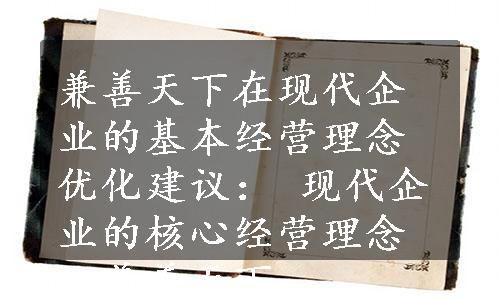 兼善天下在现代企
业的基本经营理念
优化建议： 现代企
业的核心经营理念